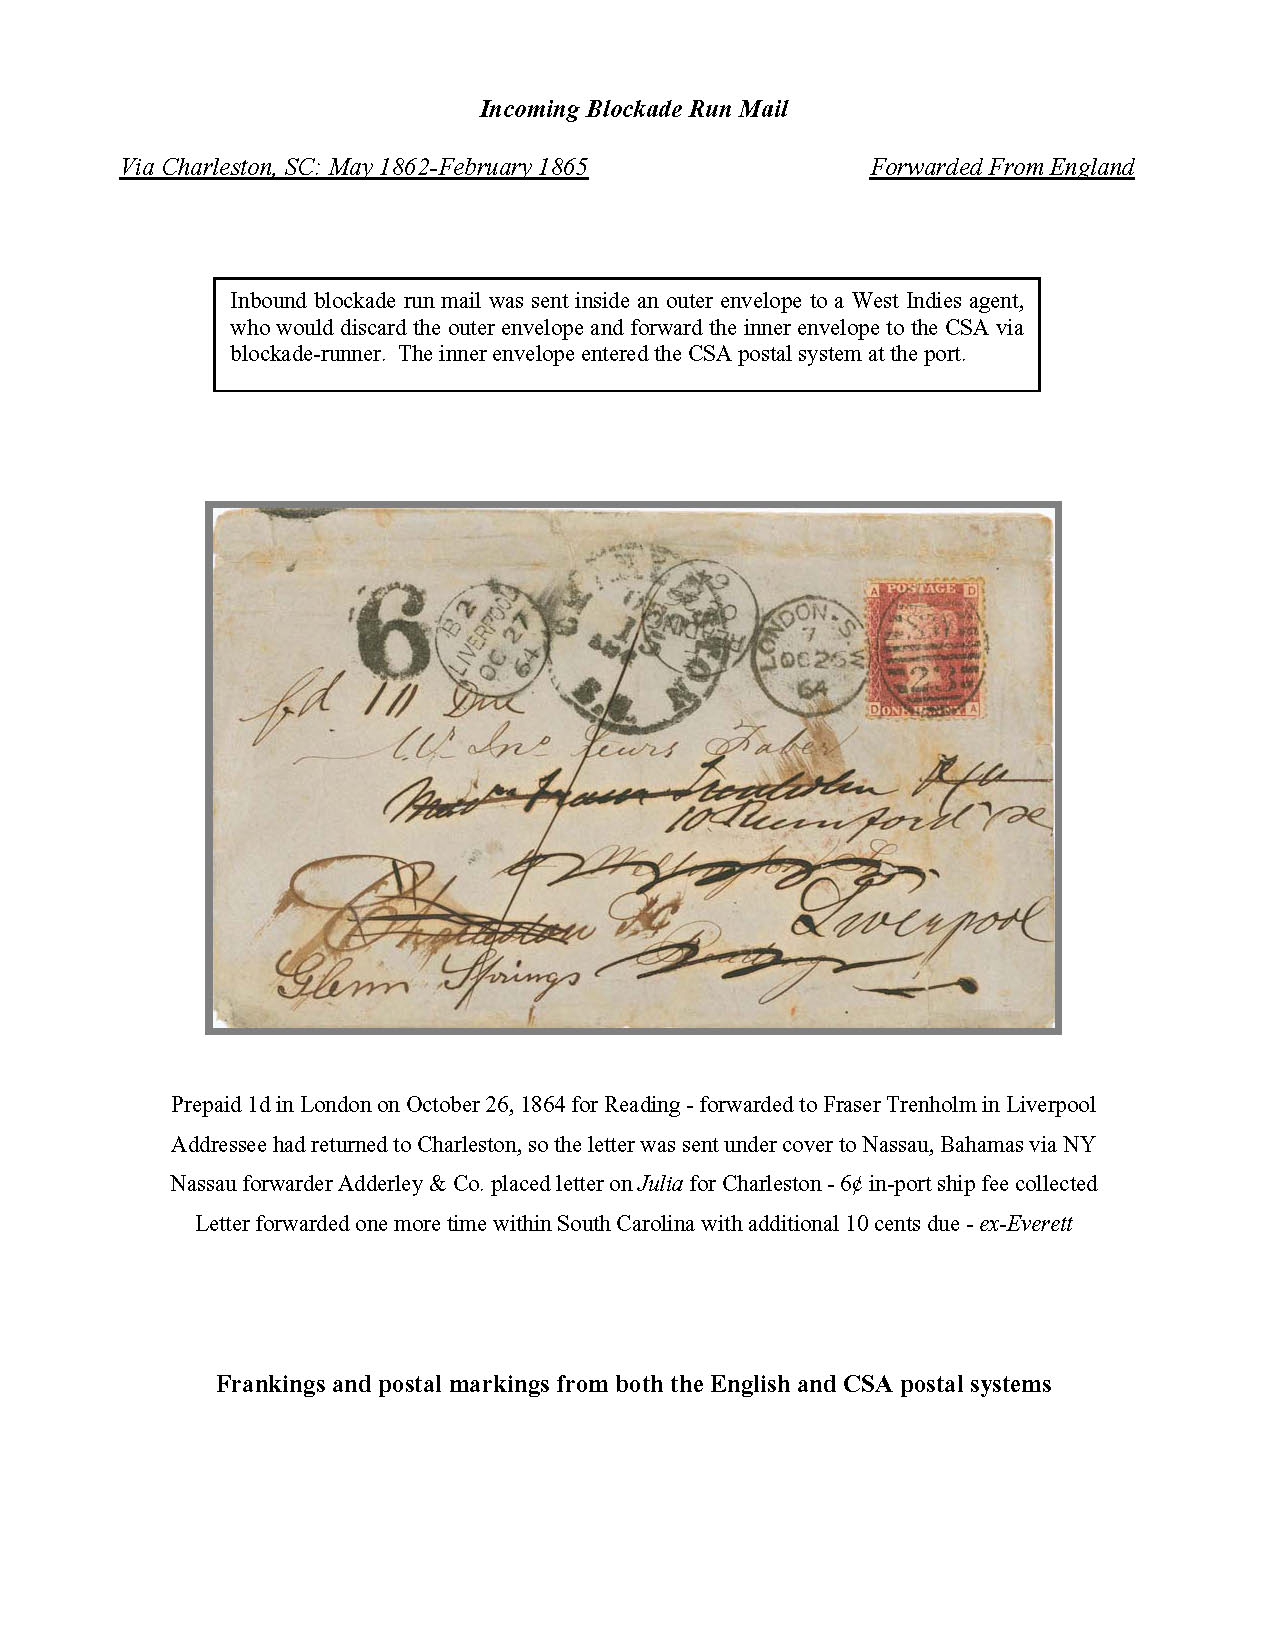 Incoming Blockade Run Mail
Via Charleston, SC: May 1862-February 1865
Forwarded From England
Inbound blockade run mail was sent inside an outer envelope to a West Indies agent,
who would discard the outer envelope and forward the inner envelope to the CSA via
blockade-runner. The inner envelope entered the CSA postal system at the port.
6
B 2
LIVERPOOL
OC 27
64
LONDON-S.W
7
OC 26
64
POSTAGE
A D
D A
23
fd 10 Due
Faber
Fraser Trenholm & Co
10 Rumford
Liverpool
Charleston SC
Reading
Glenn Springs
Prepaid 1d in London on October 26, 1864 for Reading - forwarded to Fraser Trenholm in Liverpool
Addressee had returned to Charleston, so the letter was sent under cover to Nassau, Bahamas via NY
Nassau forwarder Adderley & Co. placed letter on Julia for Charleston - 6¢ in-port ship fee collected
Letter forwarded one more time within South Carolina with additional 10 cents due - ex-Everett
Frankings and postal markings from both the English and CSA postal systems